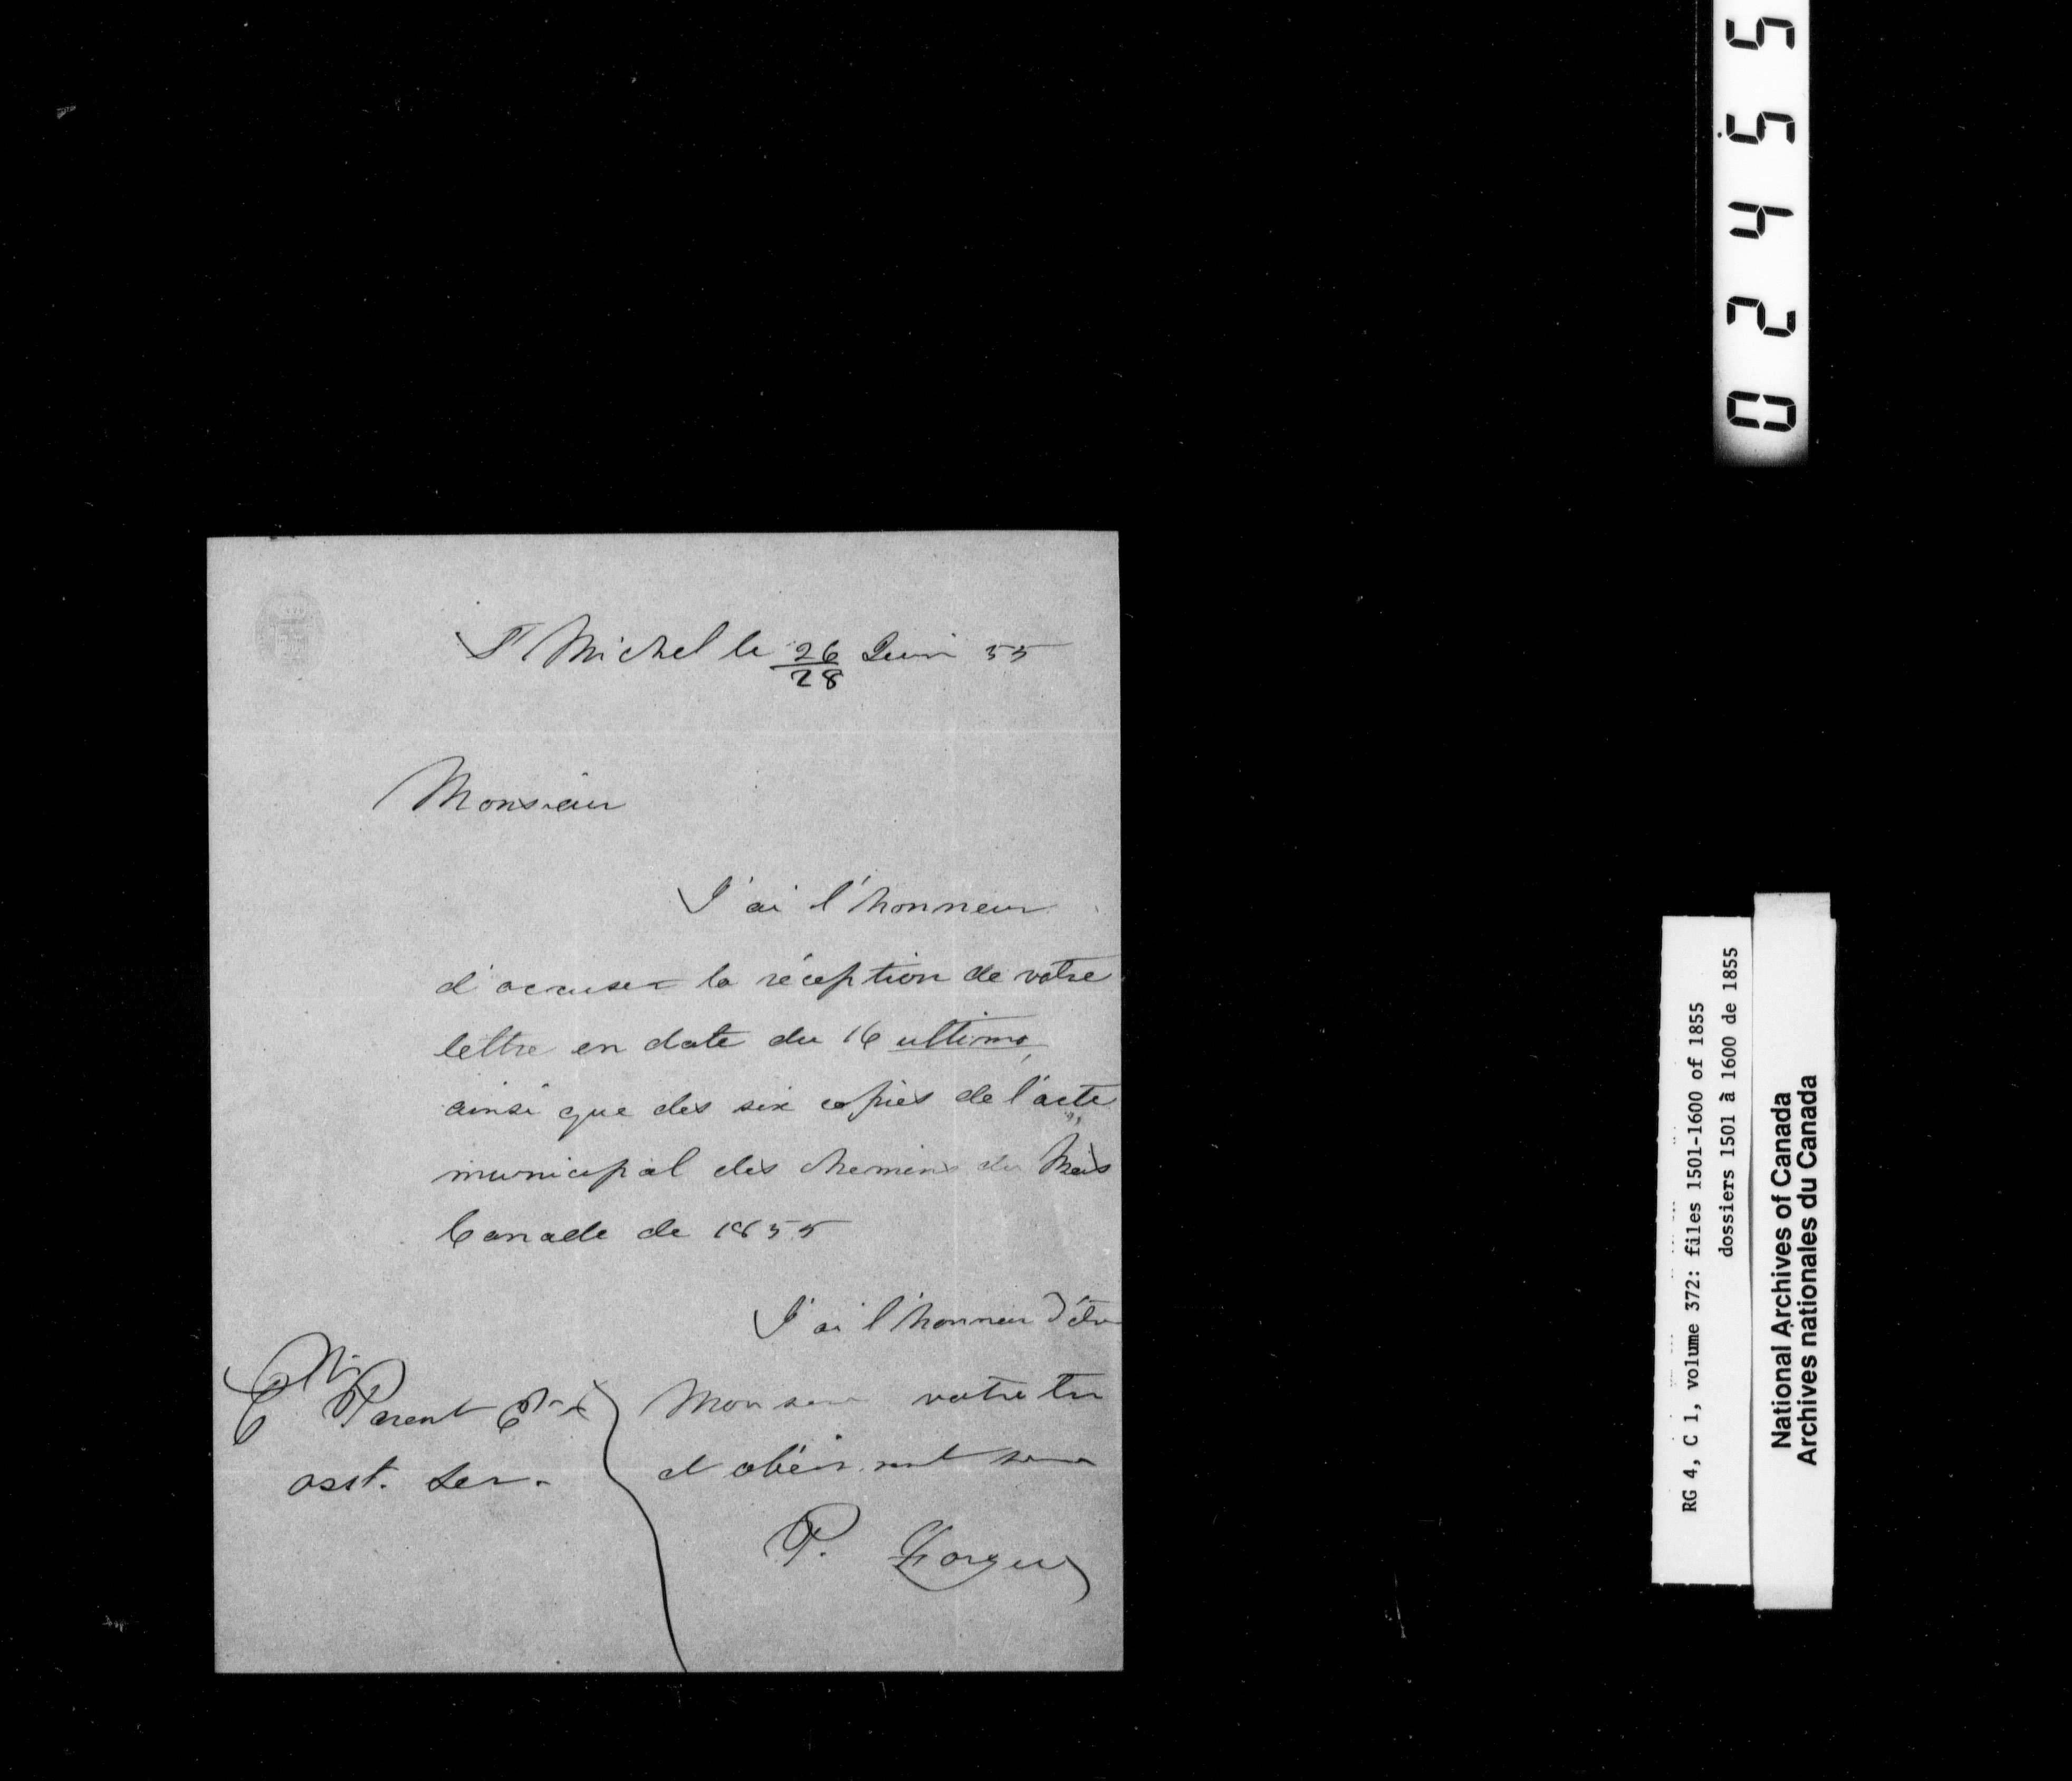 St Michel le 26 Juin 55
28
Monsieur
J'ai l'honneur
d'accuser la réception de votre
lettre en date du 16 ultimo
ainsi que des six copies de l'acte
municipal des chemins du Bas
Canada de 1855
J'ai l'honneur d'être
Monsieur votre
et obéissant
Parent
asst. Sec.
P.
02455
RG 4, C 1, volume 372: files 1501-1600 of 1855
dossiers 1501 à 1600 de 1855
National Archives of Canada
Archives nationales du Canada